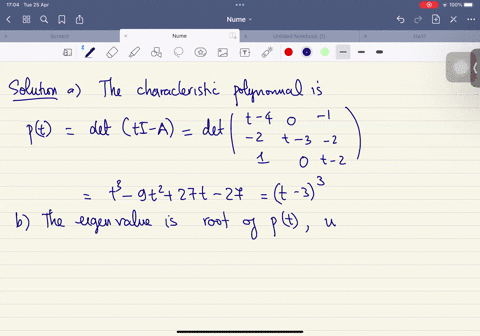 17:04 Tue 25 Apr
100%
Nume
Nume
Untitled Notebook (1)
Solution a) The characteristic polynomnal is
p(t) = det (tI-A) = det ( t-4 0 -1
-2 t-3 -2
1 0 t-2 )
= t³ - 9t² + 27t - 27 = (t - 3)³
b) The eigenvalue is root of p(t), u